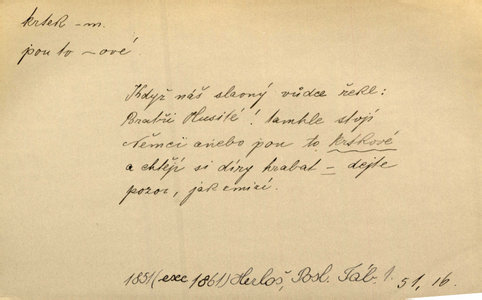 krtek – m.
jsou to – ové.
Když náš slavný vůdce řekl:
Bratři Husité! tamhle stojí
Němci anebo jsou to krtkové
a chtějí si díry hrabat – dejte
pozor, jak zmizí.
1851 (exc 1861) Herloš, Posl. Táb. 1. 51, 16.